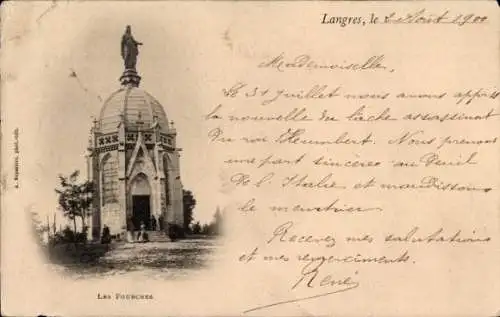 Langres, le 2 Août 1900
Mademoiselle,
Le 31 Juillet nous avons appris
la nouvelle du lâche assassinat
du roi Heumbert. Nous prenons
une part sincère au Deuil
De l'Italie et maudissons
le meurtrier
Recevez mes salutations
et mes remerciments.
René
LES FOURCHES